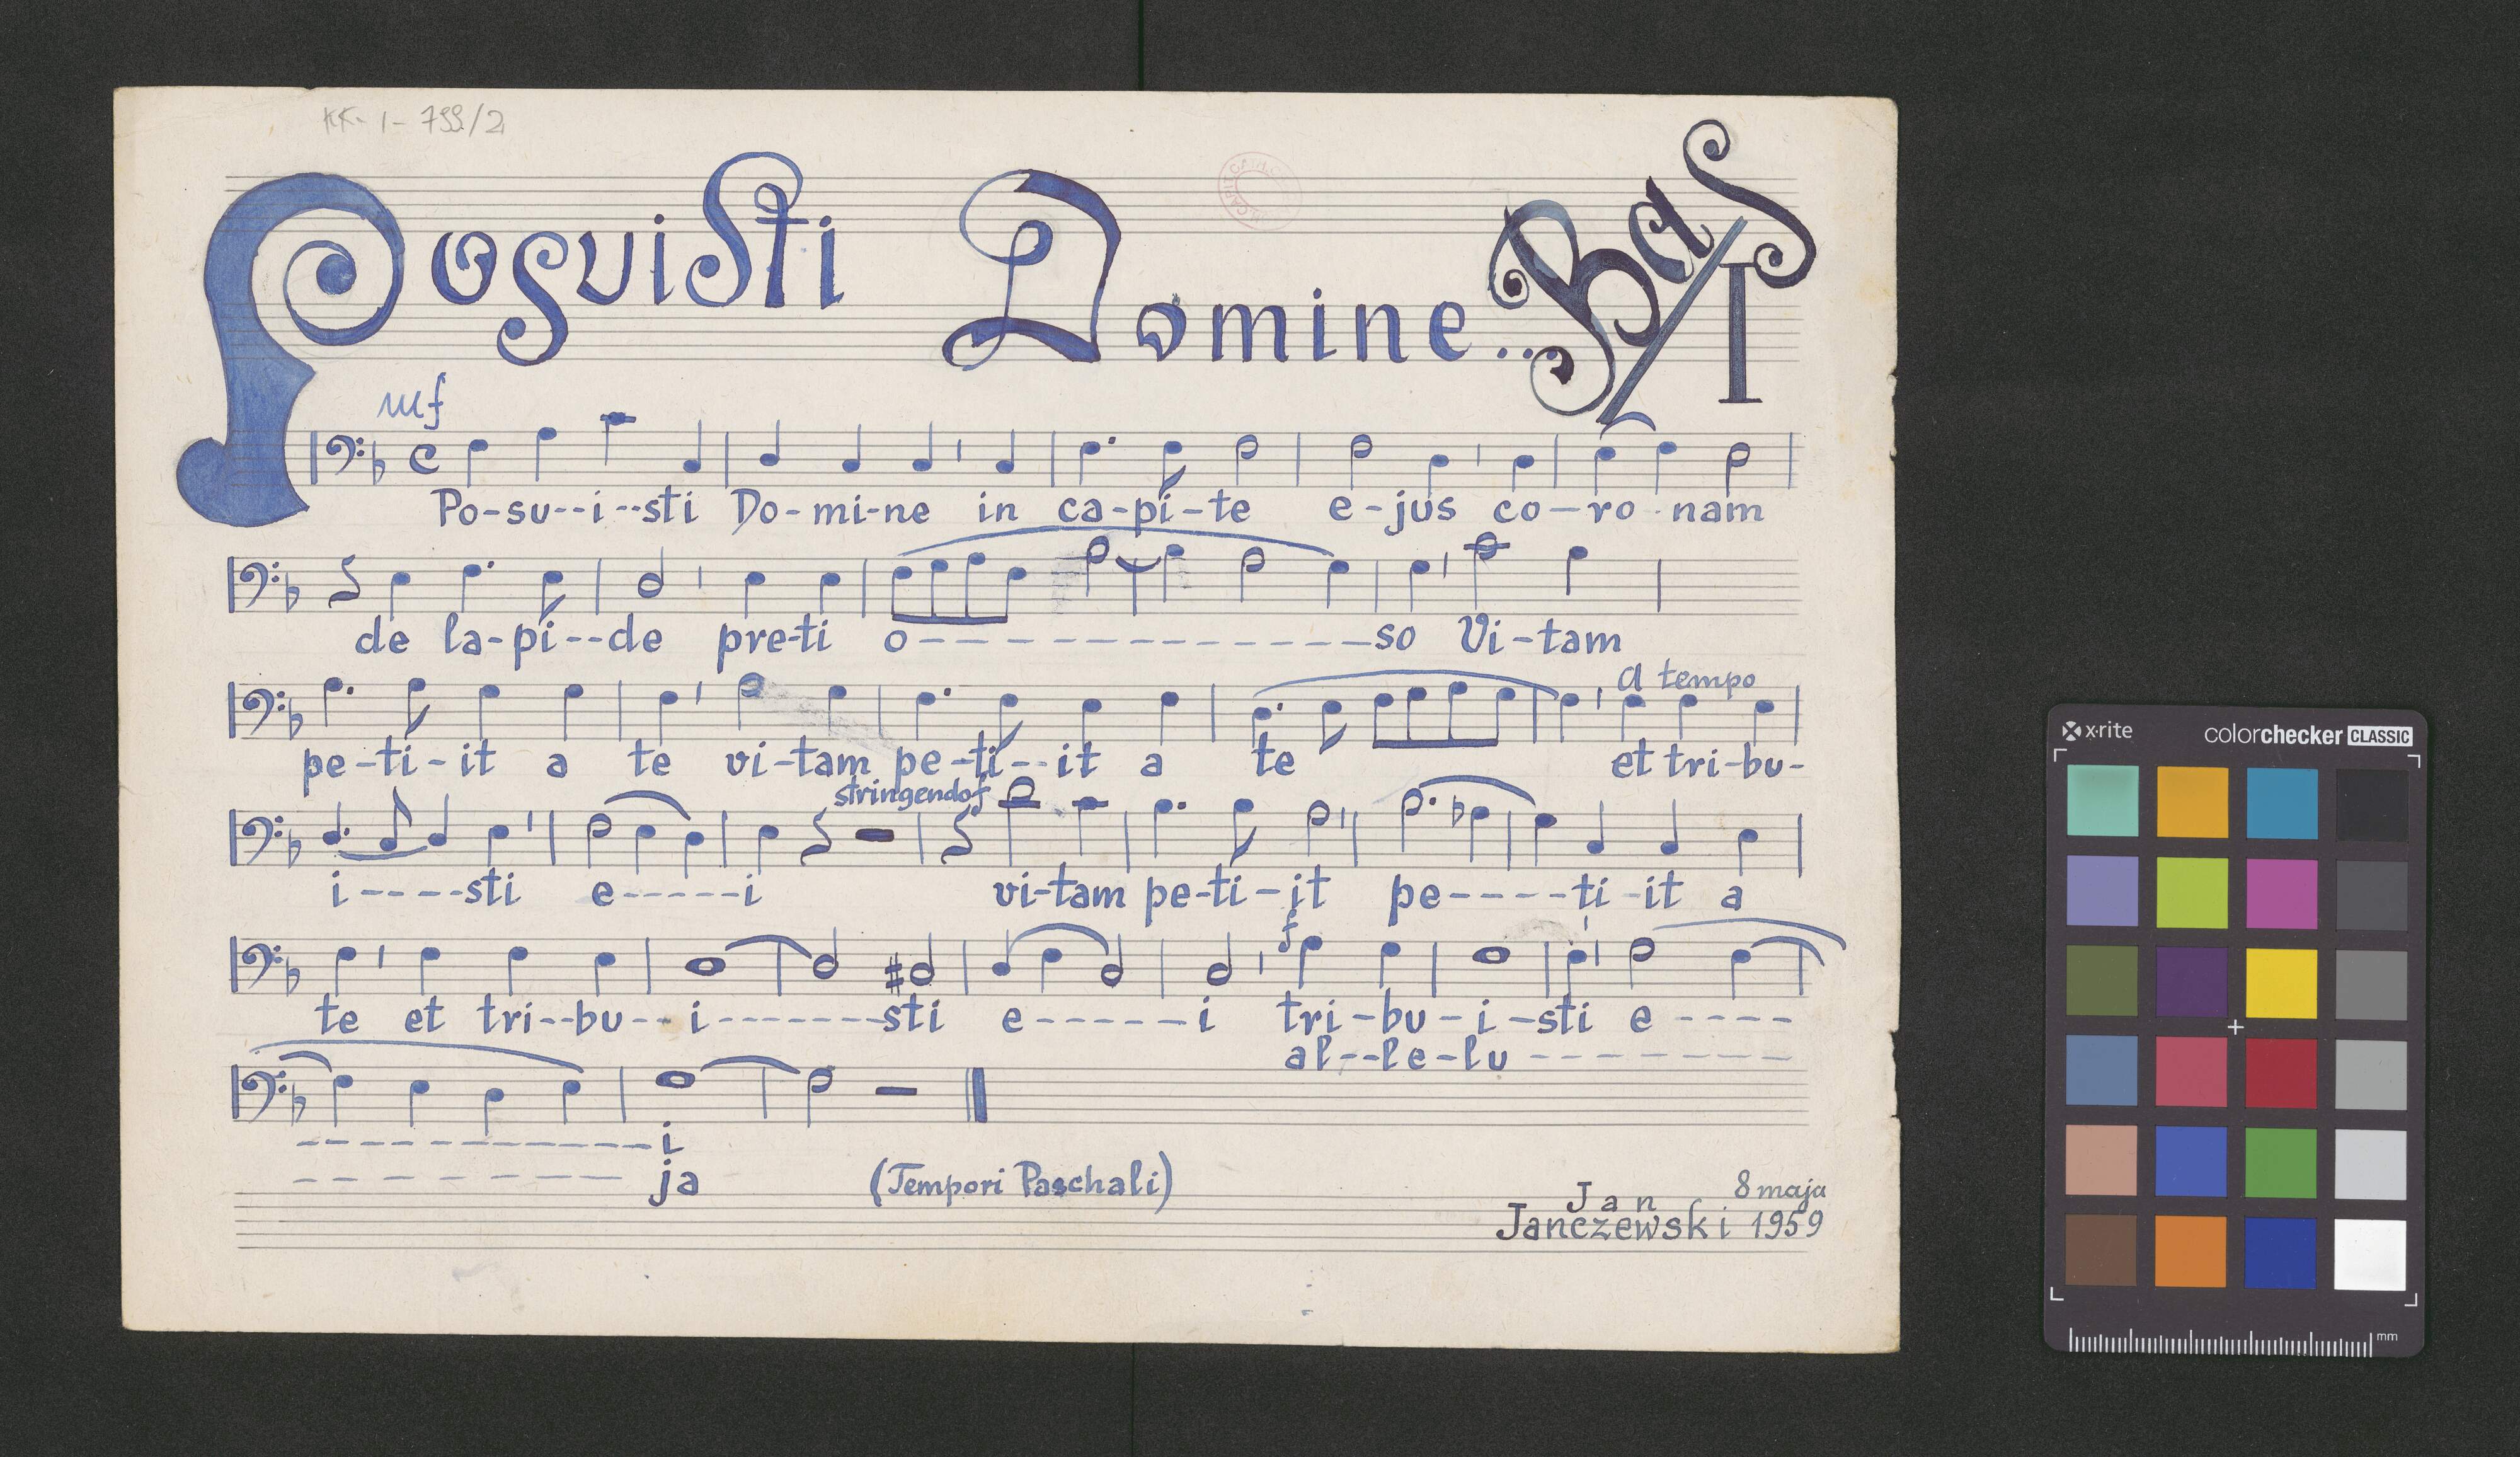 KK-I-799/2
Posuisti Domine...
Bas I
mf
Po-su--i--sti Do-mi-ne in ca-pi-te e-jus co-ro-nam
de la-pi--de pre-ti o------------so Vi-tam
a tempo
pe-ti-it a te vi-tam pe-ti--it a te et tri-bu-
stringendo f
i----sti e-----i vi-tam pe-ti-it pe----ti-it a
f
te et tri--bu--i-------sti e-----i tri-bu-i-sti e----
al--le-lu-------
------------i
--------ja (Tempori Paschali)
Jan 8 maja
Janczewski 1959
x·rite colorchecker CLASSIC
mm